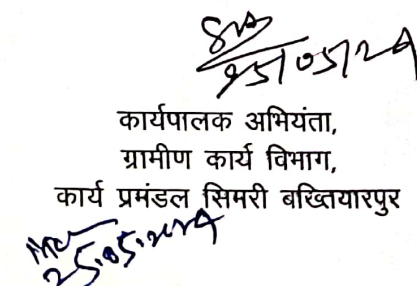 25/05/24
कार्यपालक अभियंता,
ग्रामीण कार्य विभाग,
कार्य प्रमंडल सिमरी बख्तियारपुर
25.05.2024